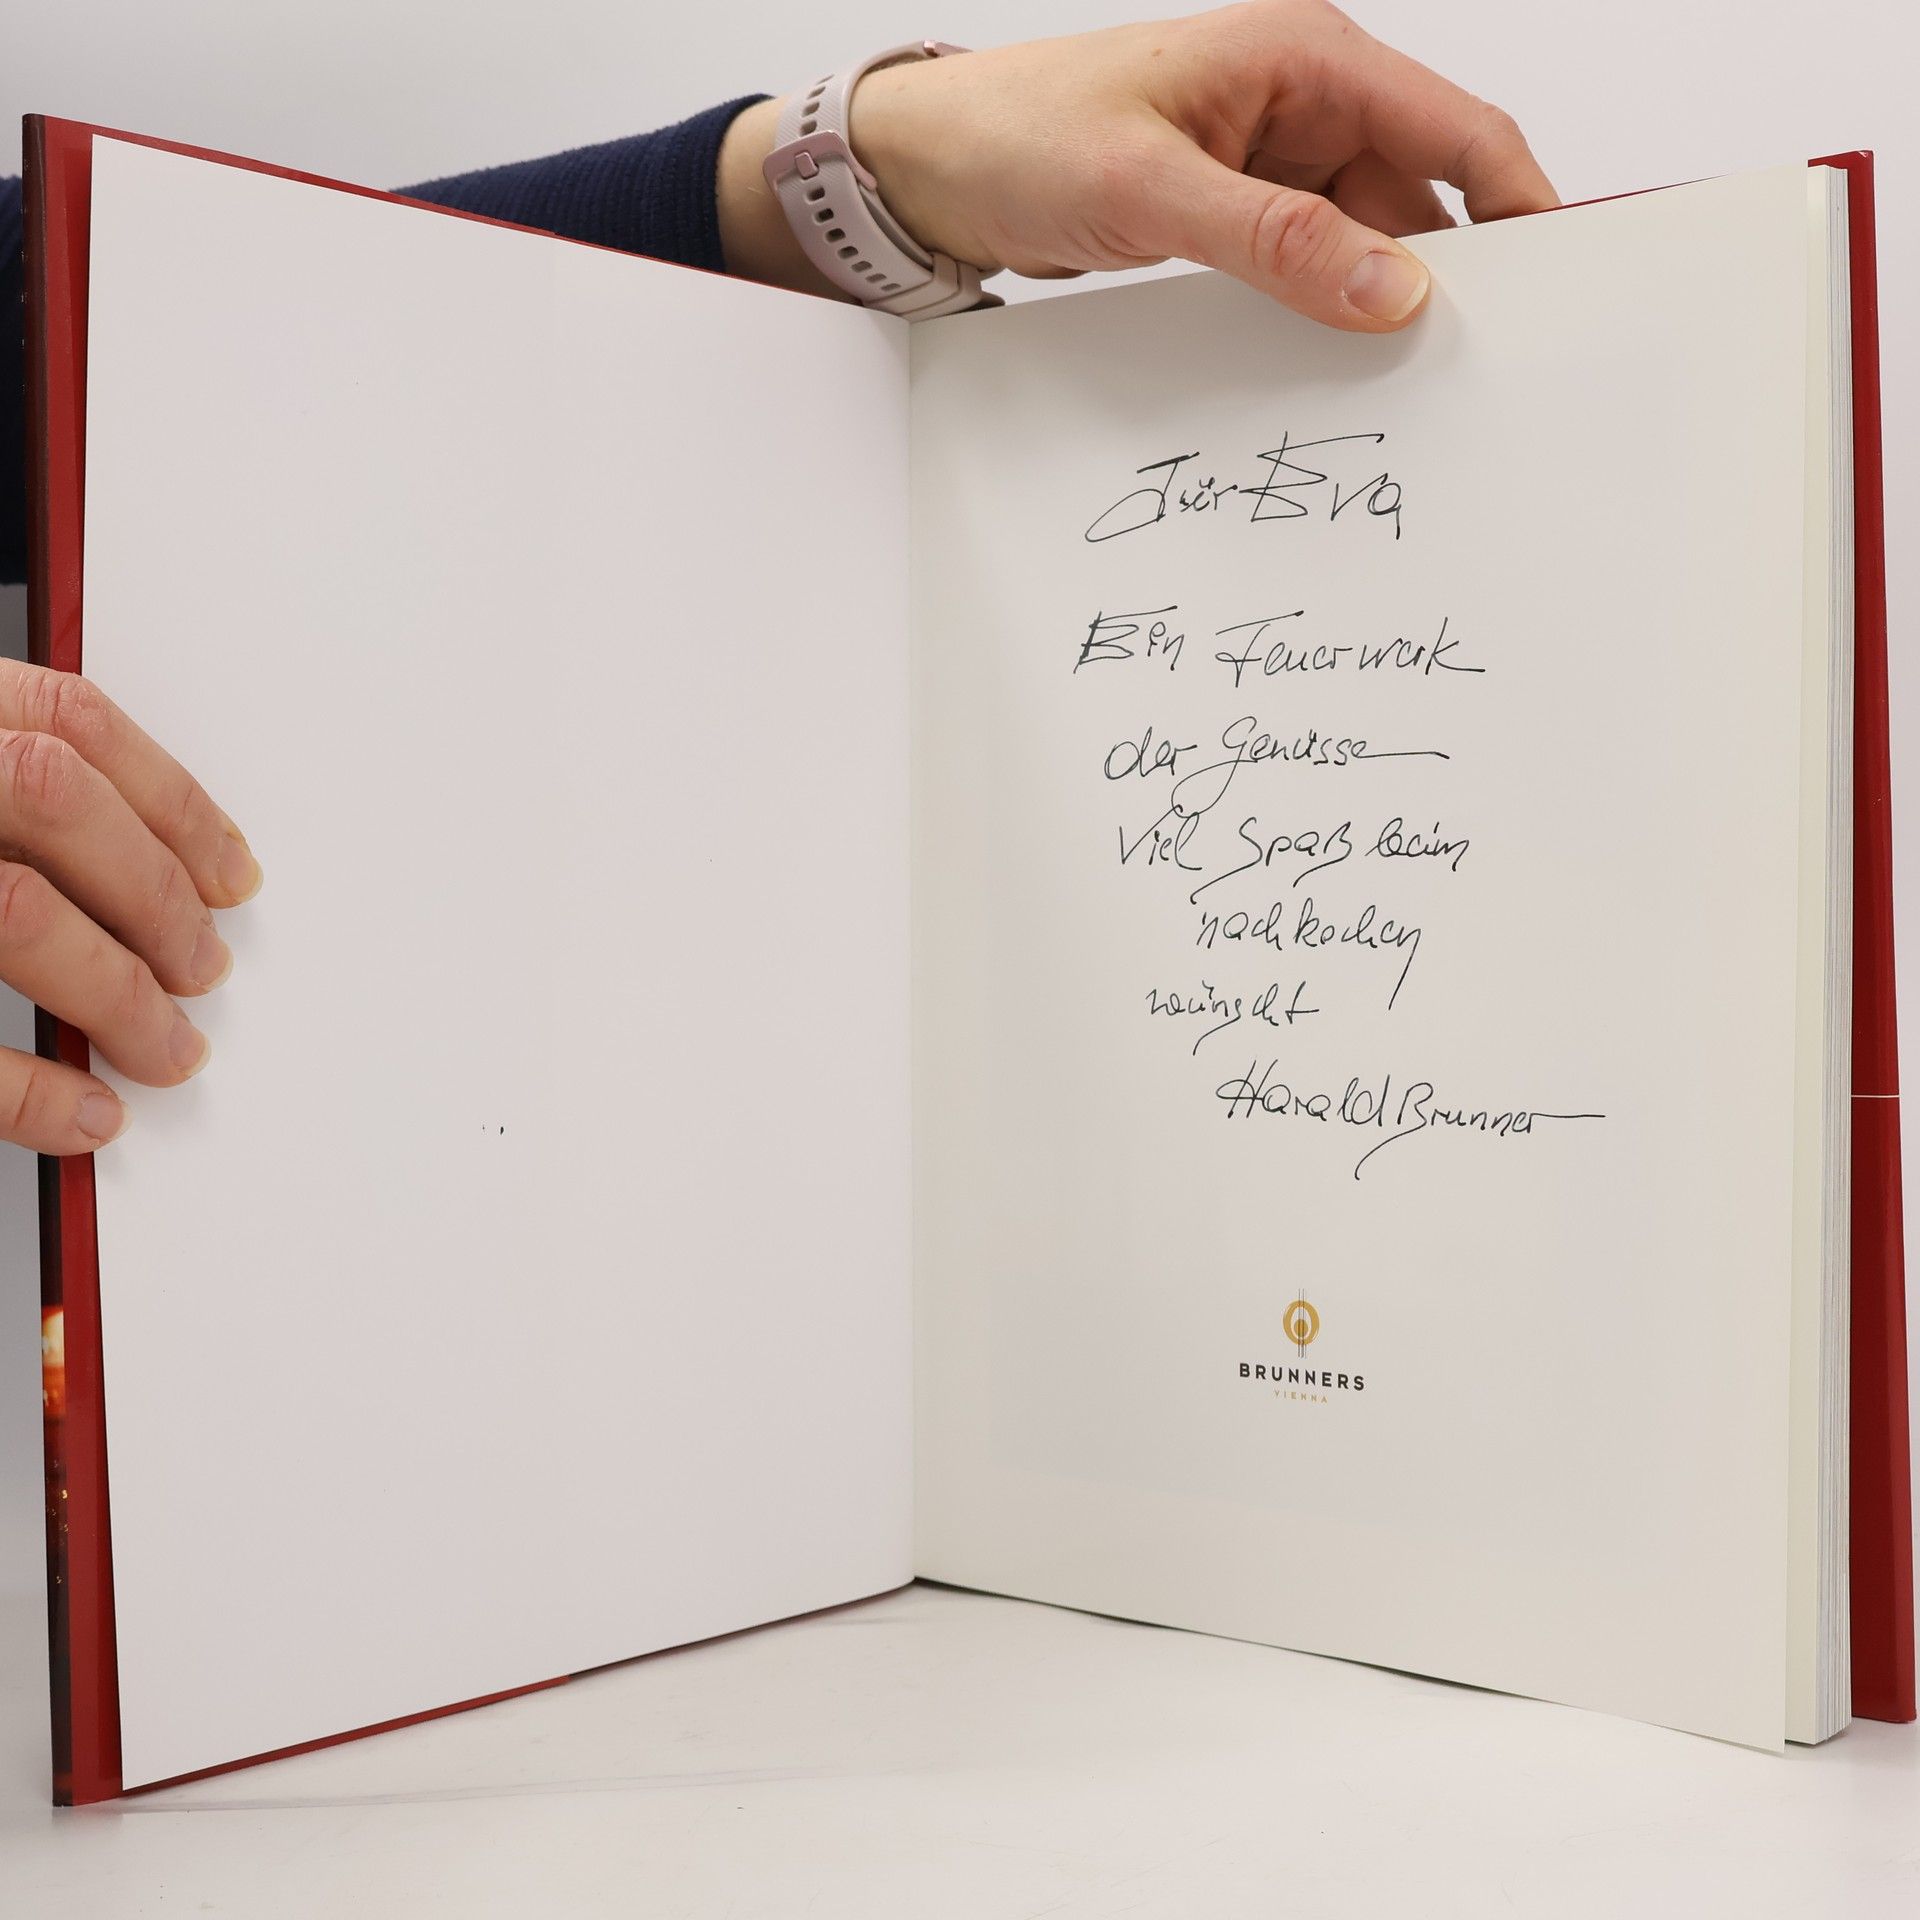 Für Eva
Ein Feuerwerk
der Genüsse
Viel Spaß beim
nachkochen
wünscht
Harald Brunner
BRUNNERS
VIENNA